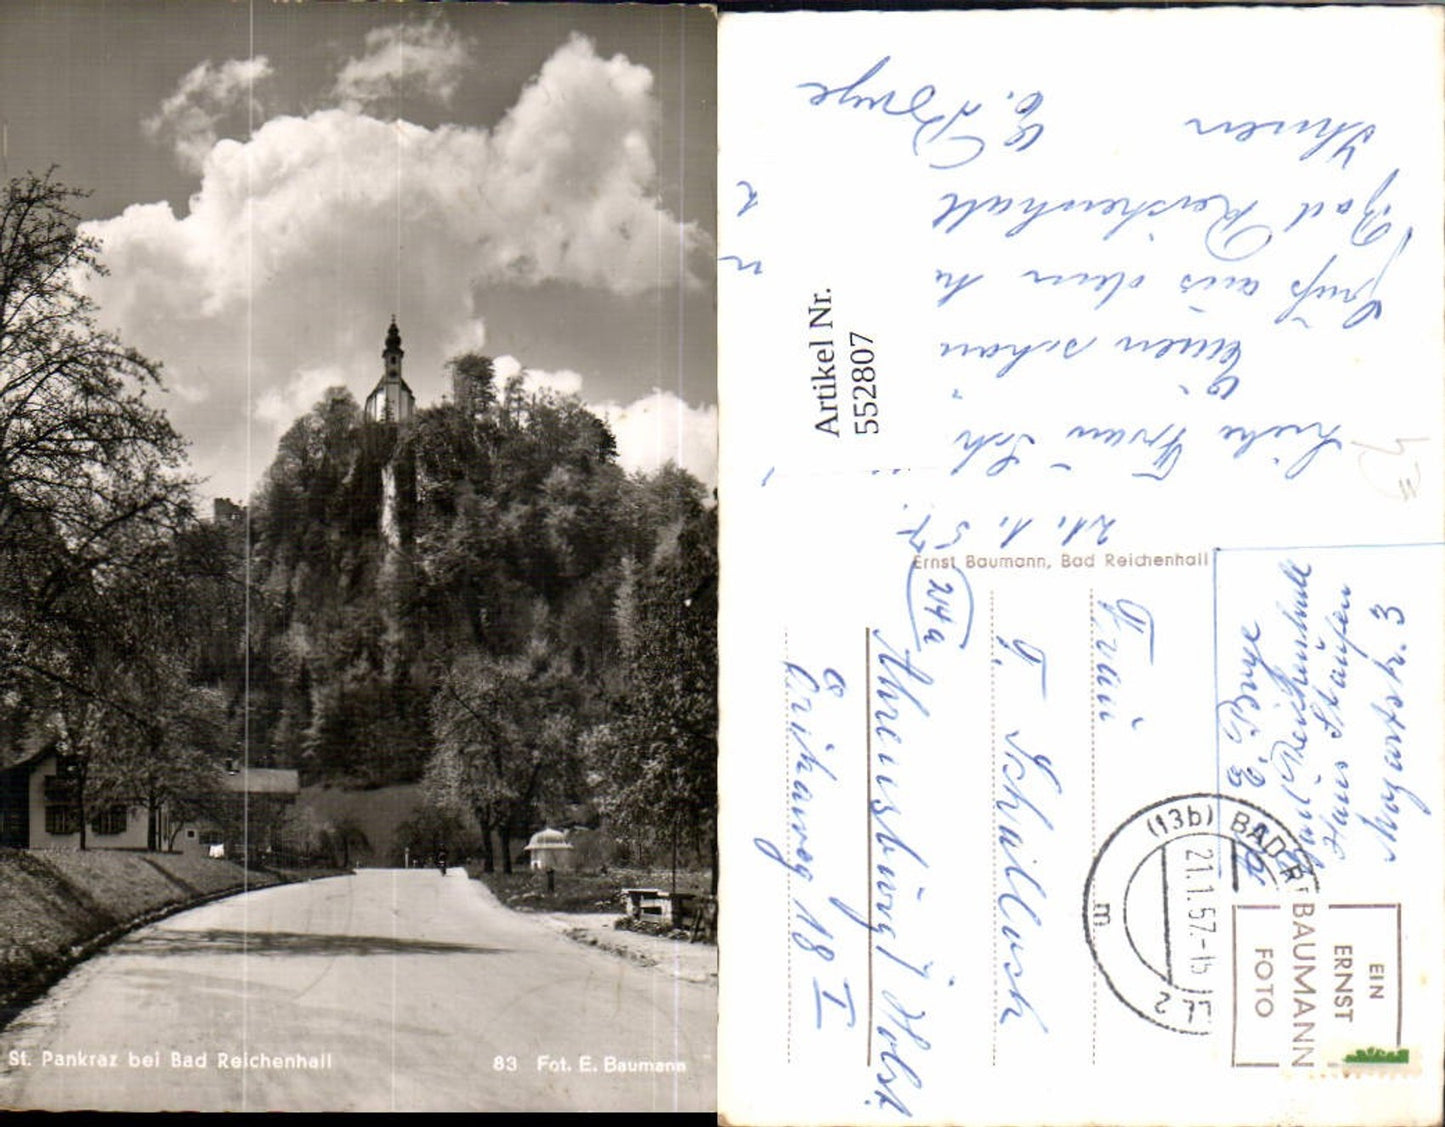 St. Pankraz bei Bad Reichenhall
83 Fot. E. Baumann
Artikel Nr.
552807
21. 1. 57.
Liebe Frau Sch
Einen schön
Gruß aus dem
Bad Reichenhall
Ihnen
E.
Ernst Baumann, Bad Reichenhall
Frau
T. Schillock
(24a)
Ahrensburg / Holst.
Erikaweg 18 I
E.
Bad Reichenhall
Haus Staufen
Mozartstr. 3
(13b) BAD R
21.1.57.-15
m
EIN
ERNST
BAUMANN
FOTO